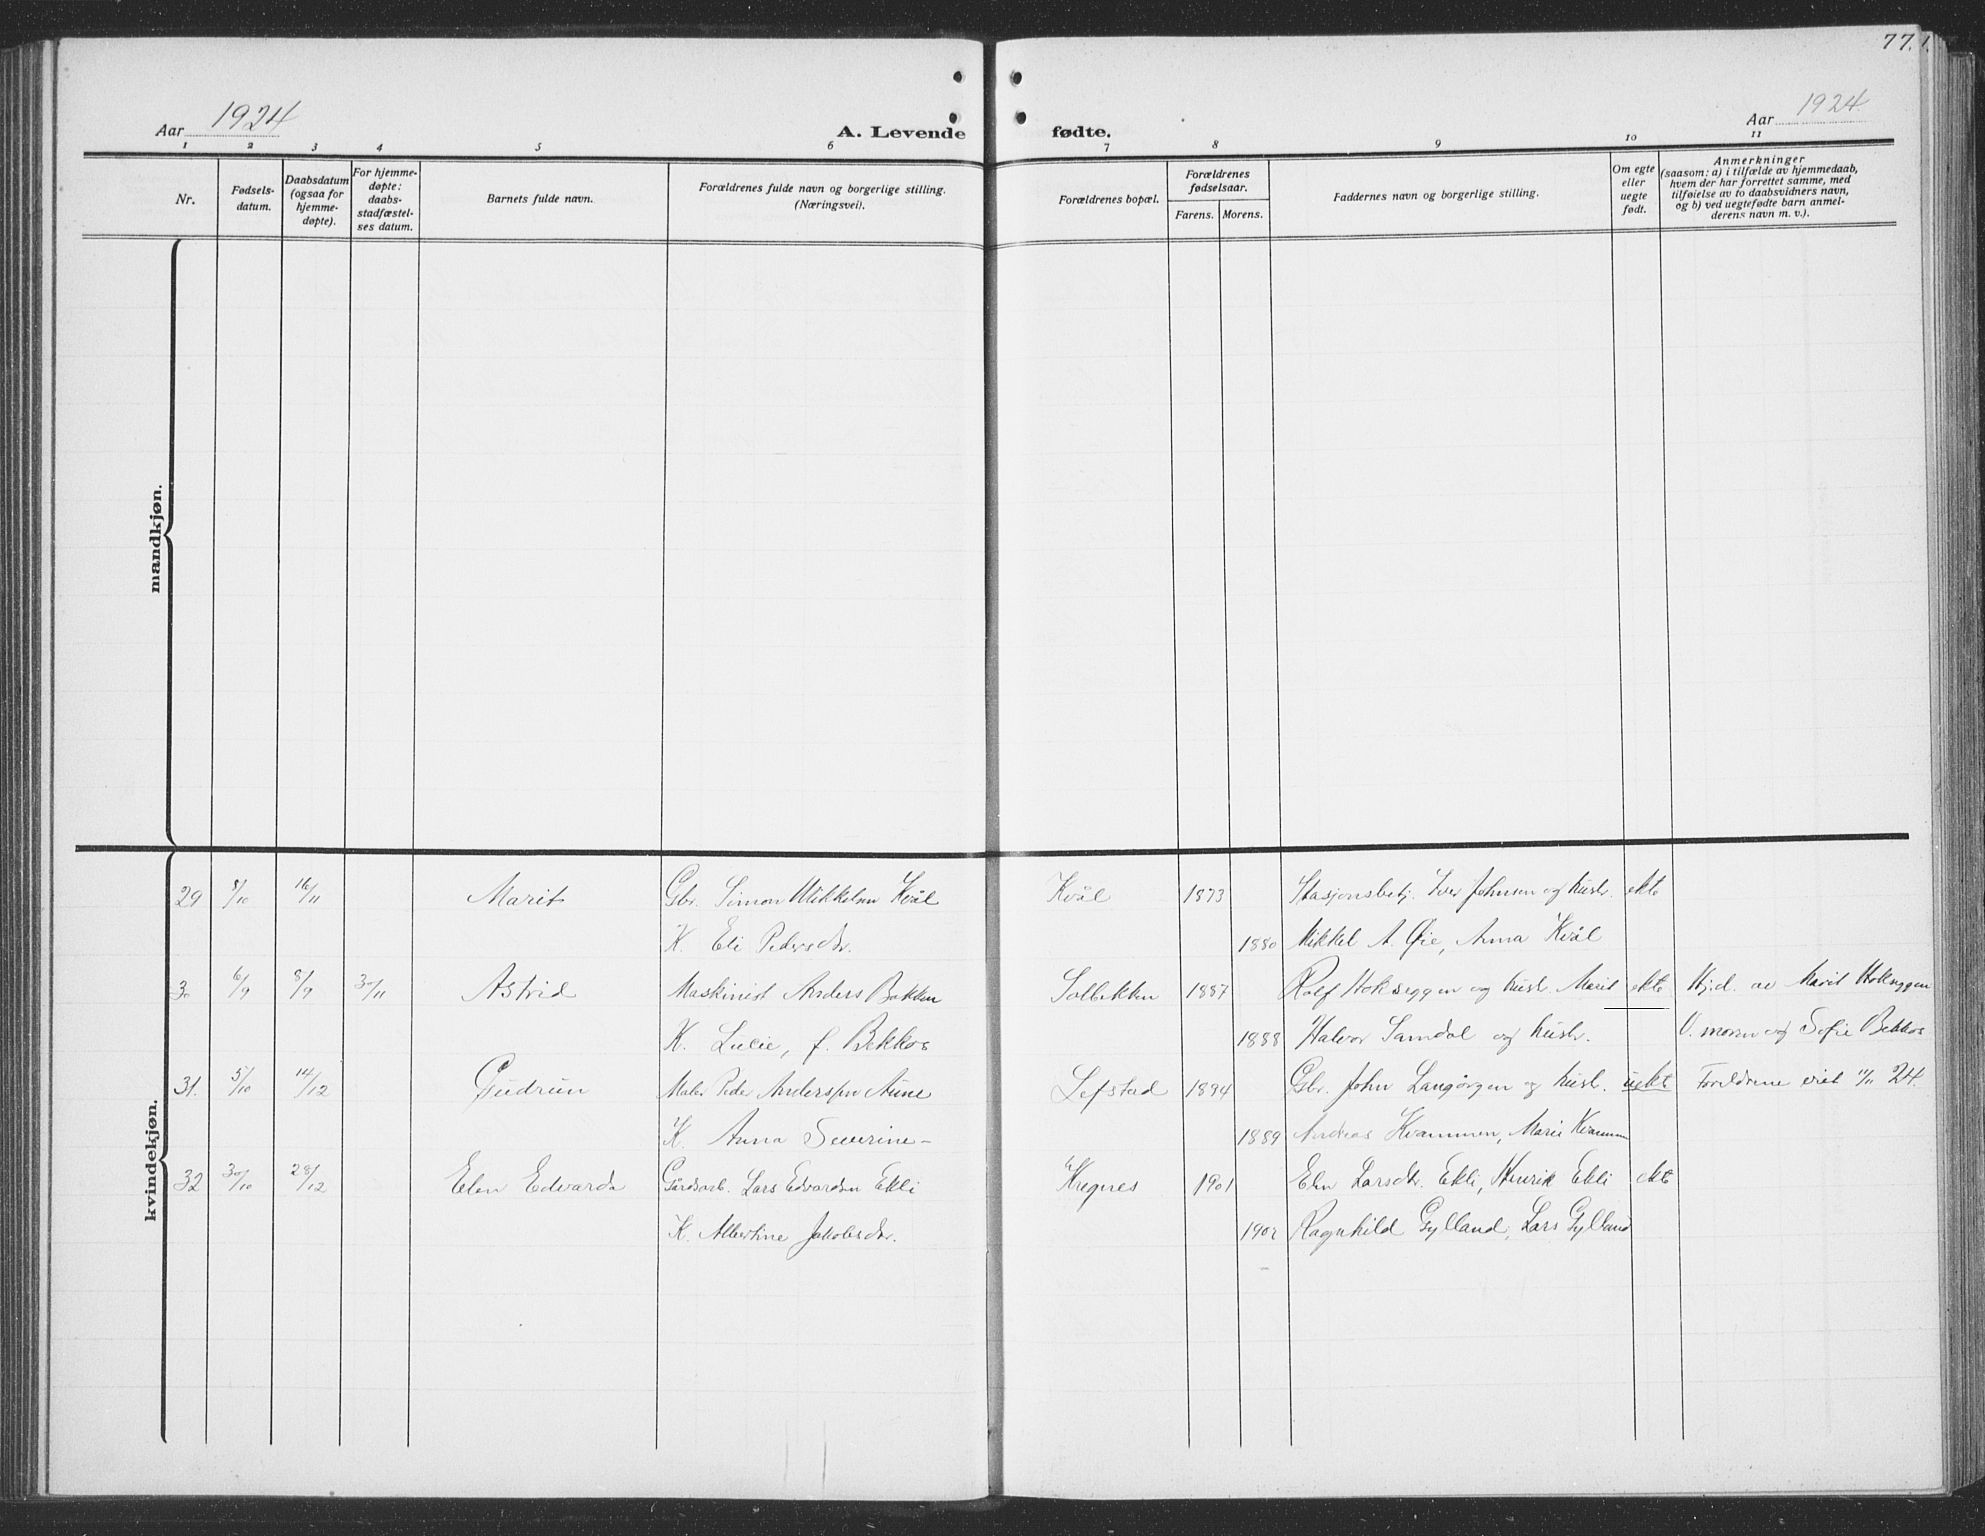 77.
Aar 1924
A. Levende fødte.
Aar 1924
1 2 3 4 5 6 7 8 9 10 11
Nr.
Fødsels-
datum.
Daabsdatum
(ogsaa for
hjemme-
døpte).
For hjemme-
døpte:
daabs-
stadfæstel-
ses datum.
Barnets fulde navn.
Forældrenes fulde navn og borgerlige stilling.
(Næringsvei).
Forældrenes bopæl.
Forældrenes
fødselsaar.
Farens. Morens.
Faddernes navn og borgerlige stilling.
Om egte
eller
uegte
født.
Anmerkninger
(saasom: a) i tilfælde av hjemmedaab,
hvem der har forrettet samme, med
tilføielse av to daabsvidners navn,
og b) ved uegtefødte barn anmel-
derens navn m. v.).
mandkjøn.
kvindekjøn.
29 8/10 16/11 Marit Gbr. Simon Mikkelsen Kvål Kvål 1873 Stasjonsbetj. Iver Johnsen og hustr. ekte
K. Eli Pedersdr. 1880 Mikkel A. Øie, Anna Kvål
30 6/9 8/9 30/11 Astrid Maskinist Anders Bakken Solbekken 1887 Rolf Hokseggen og hustr. Marit ekte Hj.d. av Marit Hokseggen
K. Lucie, f. Bekkos 1888 Halvor Samdal og hustr. V. moren og Sofie Bekkos
31. 5/10 14/12 Gudrun Maler Peder Anderssen Aune Lefstad 1894 Gbr. John Langørgen og hustr. uekte Foreldrene viet 1/11 24.
K. Anna Severine - 1889 Andreas Kvammen, Marie Kvammen
32 30/10 28/12 Elen Edvarda Gårdsarb. Lars Edvardsen Ekli Kregnes 1901 Elen Larsdtr. Ekli, Henrik Ekli ekte
K. Albertine Jakobsdr. 1902 Ragnhild Gylland, Lars Gylland